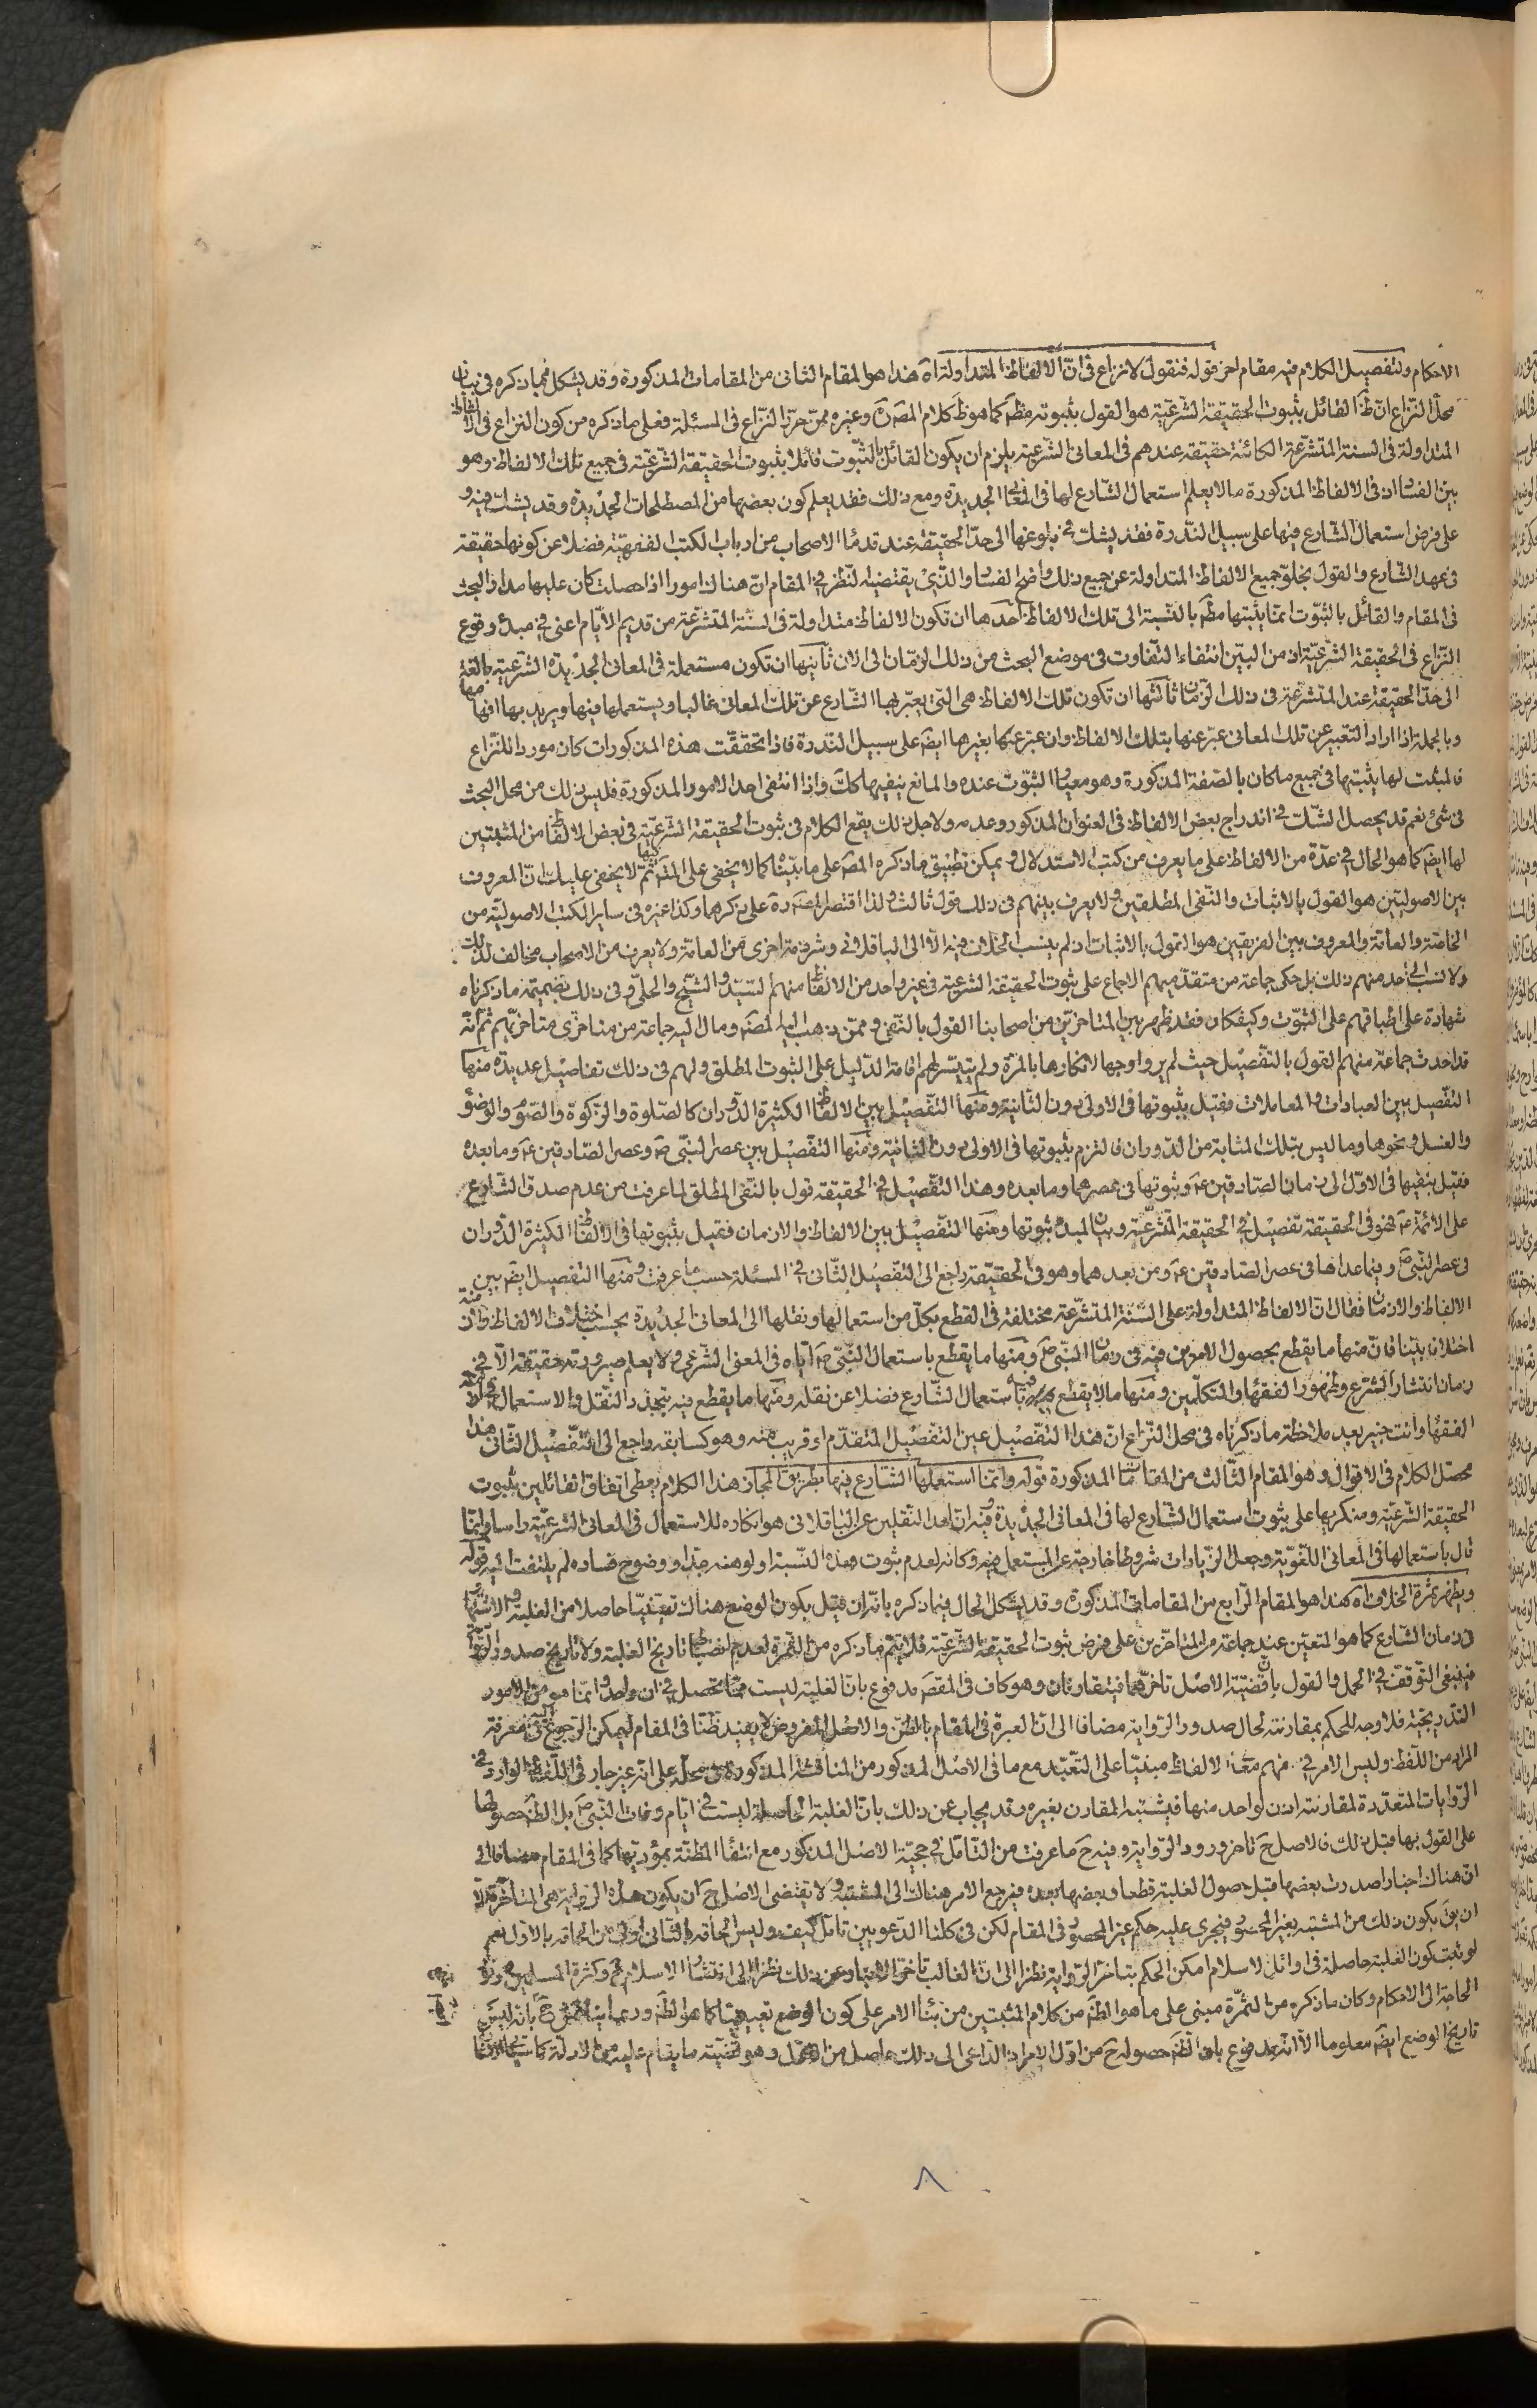 الاحكام ولتفصيل الكلام فيه مقام اخر قوله فنقول لا نزاع فى انّ الالفاظ المتداولة اه هذا هو المقام الثانى من المقامات المذكورة وقد يشكل فيما ذكره فى بيان
محلّ النّزاع انّ ظ القائل بثبوت الحقيقة الشّرعيّة هو القول بثبوته مظم كما هو ظ كلام المص ره وغيره ممّن حرّر النّزاع فى المسئلة فعلى ما ذكره من كون النزاع فى الالفاظ
المتداولة فى السنة المتشرّعة الكائنة حقيقة عندهم فى المعانى الشّرعيّة يلزم ان يكون القائل بالثّبوت قائلا بثبوت الحقيقة الشّرعيّة فى جميع تلك الالفاظ وهو
بيّن الفساد اذ فى الالفاظ المذكورة ما لا يعلم استعمال الشّارع لها فى المعانى الجديدة ومع ذلك فقد يعلم كون بعضها من المصطلحات الجديدة وقد يشك فيه و
على فرض استعمال الشارع فيها على سبيل النّدرة فقد يشك فى بلوغها الى حدّ الحقيقة عند قدماء الاصحاب من ارباب الكتب الفقهيّة فضلا عن كونها حقيقة
فى عهد الشّارع والقول بخلوّ جميع الالفاظ المتداولة عن جميع ذلك واضح الفساد والّذى يقتضيه النّظر فى المقام انّ هناك امورا اذا حصلت كان عليها مدار البحث
فى المقام والقائل بالثبّوت انّما يثبتها مظم بالنّسبة الى تلك الالفاظ احدها ان تكون الالفاظ متداولة فى السنة المتشرّعة من قديم الايّام اعنى فى مبدء وقوع
النّزاع فى الحقيقة الشّرعيّة اذ من البيّن انتفاء التّفاوت فى موضع البحث من ذلك الزّمان الى الان ثانيها ان تكون مستعملة فى المعانى الجديدة الشّرعيّة بالغة
الى حدّ الحقيقة عند المتشرّعة فى ذلك الزّمان ثالثها ان تكون تلك الالفاظ هى التى يعبّر بها الشّارع عن تلك المعانى غالبا ويستعملها فيها ويريد بها افهامها
وبالجملة اذا اراد التّعبير عن تلك المعانى عبّر عنها بتلك الالفاظ وان عبّر عنها بغيرها ايضا على سبيل النّدرة فاذا تحققّت هذه المذكورات كان موردا للنّزاع
فالمثبت لها يثبتها فى جميع ما كان بالصّفة المذكورة وهو معيار الثبّوت عنده والمانع ينفيها كك واذا انتفى احد الامور المذكورة فليس ذلك من محل البحث
فى شئ نعم قد يحصل الشّك فى اندراج بعض الالفاظ فى العنوان المذكور وعدمه ولاجل ذلك يقع الكلام فى ثبوت الحقيقة الشّرعيّة فى بعض الالفاظ من المثبتين
لها ايضا كما هو الحال فى عدّة من الالفاظ على ما يعرف من كتب الاستدلال ويمكن تطبيق ما ذكره المص على ما بيّناه كما لا يخفى على المتامّل ثم لا يخفى عليك انّ المعروف
بين الاصوليّين هو القول بالاثبات والنّفى المطلقين ولا يعرف بينهم فى ذلك قول ثالث ولذا اقتصر المص ره على ذكرهما وكذا غيره فى ساير الكتب الاصوليّة من
الخاصّة والعامّة والمعروف بين الفريقين هو القول بالاثبات اذ لم ينسب الخلاف فيه الّا الى الباقلانى وشرذمة اخرى من العامّة ولا يعرف من الاصحاب مخالف لذلك
ولا نسب الى احد منهم ذلك بل حكى جماعة من متقدّميهم الاجماع على ثبوت الحقيقة الشرعيّة فى غير واحد من الالفاظ منهم السّيّد والشّيخ والحلّى وفى ذلك بضميمة ما ذكرناه
شهادة على اطباقهم على الثبّوت وكيف كان فقد ظهر بين المتاخرين من اصحابنا القول بالنّفى وممّن ذهب اليه المص ومال اليه جماعة من متاخرى متاخّريهم ثمّ انّه
قد احدث جماعة منهم القول بالتّفصيل حيث لم يروا وجها لانكارها بالمرّة ولم يتيسّر لهم اقامة الدّليل على الثبوت المطلق ولهم فى ذلك تفاصيل عديدة منها
التّفصيل بين العبادات والمعاملات فقيل بثبوتها فى الاولى دون الثّانية ومنها التّفصيل بين الالفاظ الكثيرة الدّوران كالصّلوة والزّكوة والصّوم والوضوء
والغسل ونحوها وما ليس بتلك المثابة من الدّوران فالتزم بثبوتها فى الاولى دون الثانية ومنها التّفصيل بين عصر النّبىّ ص وعصر الصّادقين ع وما بعده
فقيل بنفيها فى الاوّل الى زمان الصّادقين ع وثبوتها فى عصرهما وما بعده وهذا التّفصيل فى الحقيقة قول بالنّفى المطلق لما عرفت من عدم صدق الشّارع
على الائمّة ع فهو فى الحقيقة تفصيل فى الحقيقة المتشرّعيّة وبيان لمبدء ثبوتها ومنها التّفصيل بين الالفاظ والازمان فقيل بثبوتها فى الالفاظ الكثيرة الدّوران
فى عصر النّبىّ ص وفيما عداها فى عصر الصّادقين ع ومن بعدهما وهو فى الحقيقة راجع الى التّفصيل الثّانى فى المسئلة حسب ما عرفت ومنها التّفصيل ايضا بين
الالفاظ والازمان فقال انّ الالفاظ المتداولة على السنة المتشرّعة مختلفة فى القطع بكلّ من استعمالها ونقلها الى المعانى الجديدة بحسب اختلاف الالفاظ والازمنة
اختلافا بيّنا فانّ منها ما يقطع بحصول الامرين فيه فى زمان النّبىّ ص ومنها ما يقطع باستعمال النّبىّ ص ايّاه فى المعنى الشّرعى ولا يعلم صيرورته حقيقة الّا فى
زمان انتشار الشرع وظهور الفقهاء والمتكلّمين ومنها ما لا يقطع فيه باستعمال الشّارع فضلا عن نقله ومنها ما يقطع فيه بتجدّد النّقل والاستعمال فى ازمنة
الفقهاء وانت خبير بعد ملاحظة ما ذكرناه فى محل النّزاع انّ هذا التّفصيل عين التفصيل المتقدّم او قريب منه وهو كسابقه راجع الى التّفصيل الثّانى هذا
محصّل الكلام فى الاقوال وهو المقام الثّالث من المقامات المذكورة قوله وانّما استعملها الشّارع فيها بطريق المجاز هذا الكلام يعطى اتفاق القائلين بثبوت
الحقيقة الشّرعيّة ومنكريها على ثبوت استعمال الشّارع لها فى المعانى الجديدة وفيه ان احد النّقلين عن الباقلانى هو انكاره للاستعمال فى المعانى الشّرعيّة راسا وانّما
قال باستعمالها فى المعانى اللّغويّة وجعل الزّيادات شروطا خارجة عن المستعمل فيه وكانّه لعدم ثبوت هذه النّسبة او لوهنه جدّا ووضوح فساده لم يلتفت اليه قوله
ويظهر ثمرة الخلاف اه هذا هو المقام الرّابع من المقامات المذكورة وقد يشكل الحال فيما ذكره بانّه ان قيل بكون الوضع هناك تعيّنيّا حاصلا من الغلبة والاشتهار
فى زمان الشارع كما هو المتعيّن عند جماعة من المتاخرين على فرض ثبوت الحقيقة الشّرعيّة فلا يتمّ ما ذكره من الثّمرة لعدم انضباط تاريخ الغلبة ولا تاريخ صدور الرّواية
فينبغى التّوقّف فى الحمل والقول بانّ قضيّة الاصل تاخّرهما فيتقارنان وهو كاف فى المقص مدفوع بانّ الغلبة ليست ممّا تحصل فى ان واحد وانّما هو من الامور
التدريجيّة فلا وجه للحكم بمقارنته لحال صدور الرّواية مضافا الى انّ العبرة فى المقام بالظّنّ والاصل المفروض لا يفيد ظنّا فى المقام ليمكن الرّجوع اليه فى معرفة
المراد من اللّفظ وليس الامر فى فهم معانى الالفاظ مبنيّا على التّعبّد مع ما فى الاصل المذكور من المناقشة المذكورة فى محلّه على انّه غير جار فى اللّفظ الوارد فى
الرّوايات المتعدّدة لمقارنته اذن لواحد منها فيشتبه المقارن بغيره وقد يجاب عن ذلك بانّ الغلبة الحاصلة ليست فى ايّام وفات النّبىّ ص بل الظّ حصولها
على القول بها قبل ذلك فالاصل ح تاخر ورود الرّواية وفيه ح ما عرفت من التّامّل فى حجيّة الاصل المذكور مع انتفاء المظنّة بمؤدّيها كما فى المقام مضافا الى
انّ هناك اخبارا صدرت بعضها قبل حصول الغلبة قطعا وبعضها بعده فيرجع الامر هناك الى المشتبه ولا يقتضى الاصل ح ان يكون هذه الرّواية هى المتاخّرة الّا
ان يق بكون ذلك من المشتبه بغير المحصور فيجرى عليه حكم غير المحصور فى المقام لكن فى كلتا الدّعويين تامّل كيف وليس الحاقه بالثّانى اولى من الحاقه بالاوّل نعم
لو ثبت كون الغلبة حاصلة فى اوائل الاسلام امكن الحكم بتاخر الرّواية نظرا الى انّ الغالب تاخّر الاخبار عن ذلك نظرا الى انتشار الاسلام ح وكثرة المسلمين
الحاجة الى الاحكام وكان ما ذكره من الثمرة مبنى على ما هو الظّ من كلام المثبتين من بناء الامر على كون الوضع تعيينيّا كما هو الظّ وربما يناقش ح بانّه ليس
تاريخ الوضع ايضا معلوما الّا انّه مدفوع بانّ الظّ حصوله ح من اوّل الامر اذ الدّاعى الى ذلك حاصل من الاوّل وهو قضيّة ما يقام عليه من الادلّة كما سيجئ
٨